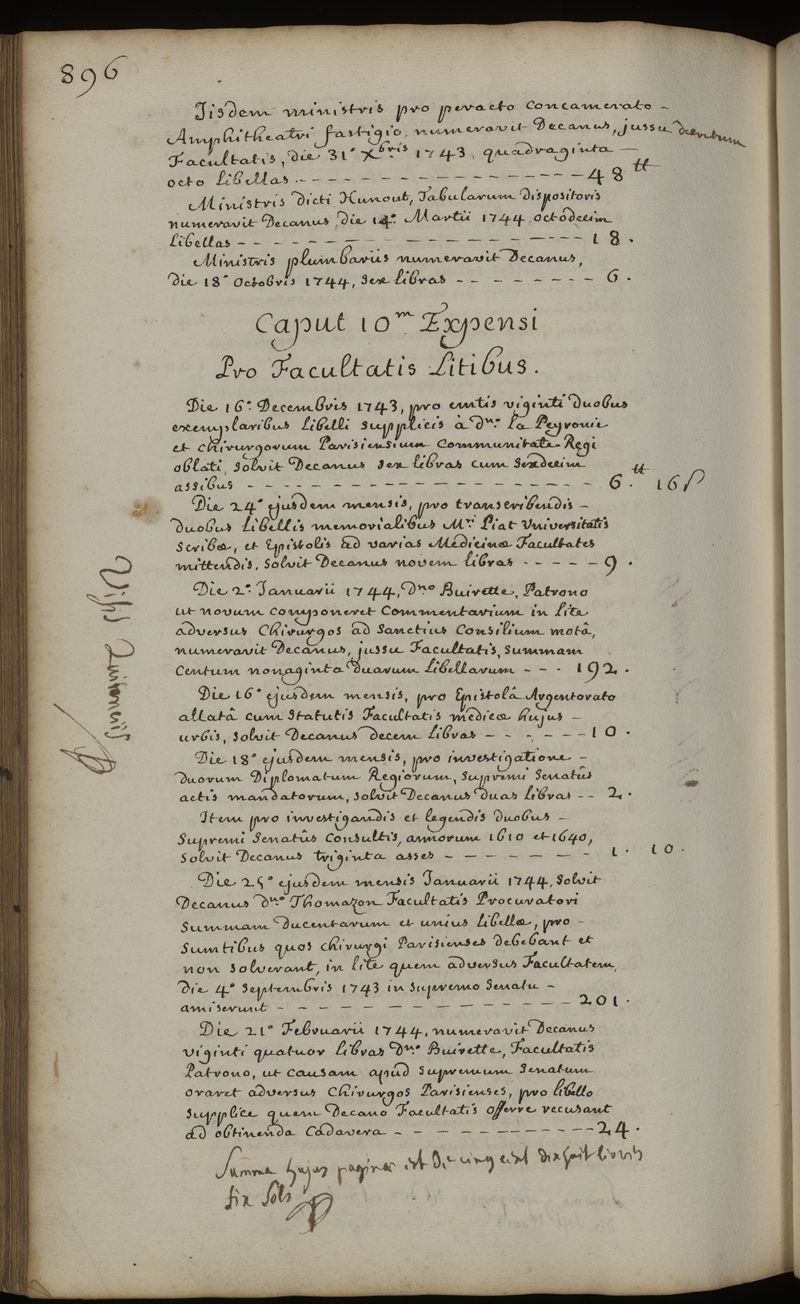 896
Iisdem ministris pro peracto concamerato -
Amphitheatri fastigio, numeravit Decanus, jussu
Facultatis, die 31ª Xbris 1743, quadraginta —
octo libellas - - - - 48 ₶
Ministris dicti Hunout, Tabularum dispositoris
numeravit Decanus, die 14ª Martii 1744, octodecim
libellas - - - - 18.
Ministris plumbariis numeravit Decanus,
die 18ª Octobris 1744, sex libras - - - - 6.
Caput 10m Expensi
Pro Facultatis Litibus.
Die 16ª Decembris 1743, pro emtis viginti duobus
exemplaribus libelli supplicis à dno. La Peyronie
et chirurgorum Parisiensium communitate Regi
oblati, solvit Decanus sex libras cum sexdecim
assibus - - - - 6. ₶ 16 ſ
Die 24ª ejusdem mensis, pro transcribendis -
duobus libellis memorialibus Mri. Piat Universitatis
scribæ, et Epistolis ad varias Medicinæ Facultates
mittendis, solvit Decanus novem libras - - - - 9.
Die 2ª Januarii 1744, Dno Buirette, Patrono
ut novum componeret commentarium in lite
adversus Chirurgos ad sanctius consilium motâ,
numeravit Decanus, jussu Facultatis, summam
centum nonaginta duarum libellarum - - - 192.
Die 16ª ejusdem mensis, pro Epistolâ Argentorato
allatâ cum statutis Facultatis medicæ hujus -
urbis, solvit Decanus decem libras - - - - 10.
Die 18ª ejusdem mensis, pro investigatione -
duorum Diplomatum Regiorum, supremi senatûs
actis mandatorum, solvit Decanus duas libras - - 2.
Item pro investigandis et legendis duobus -
supremi senatûs consultis, annorum 1610 et 1640,
solvit Decanus triginta asses - - - - 1. 10.
Die 25ª ejusdem mensis Januarii 1744, solvit
Decanus dno. Thomazon Facultatis Procuratori
summam ducentarum et unius libellæ, pro -
sumtibus quos chirurgi Parisienses debebant et
non solverant, in lite quem adversus Facultatem,
die 4ª Septembris 1743 in supremo senatu -
amiserunt - - - - 201.
Die 21ª Februarii 1744, numeravit Decanus
viginti quatuor libras Dno. Buirette, Facultatis
Patrono, ut causam apud supremum senatum
oraret adversus chirurgos Parisienses, pro libello
supplice quem Decano Facultatis offerre recusant
ad obtinenda cadavera - - - - 24.
Summa hujus paginæ est de cinq cent dix huit livres
six sols